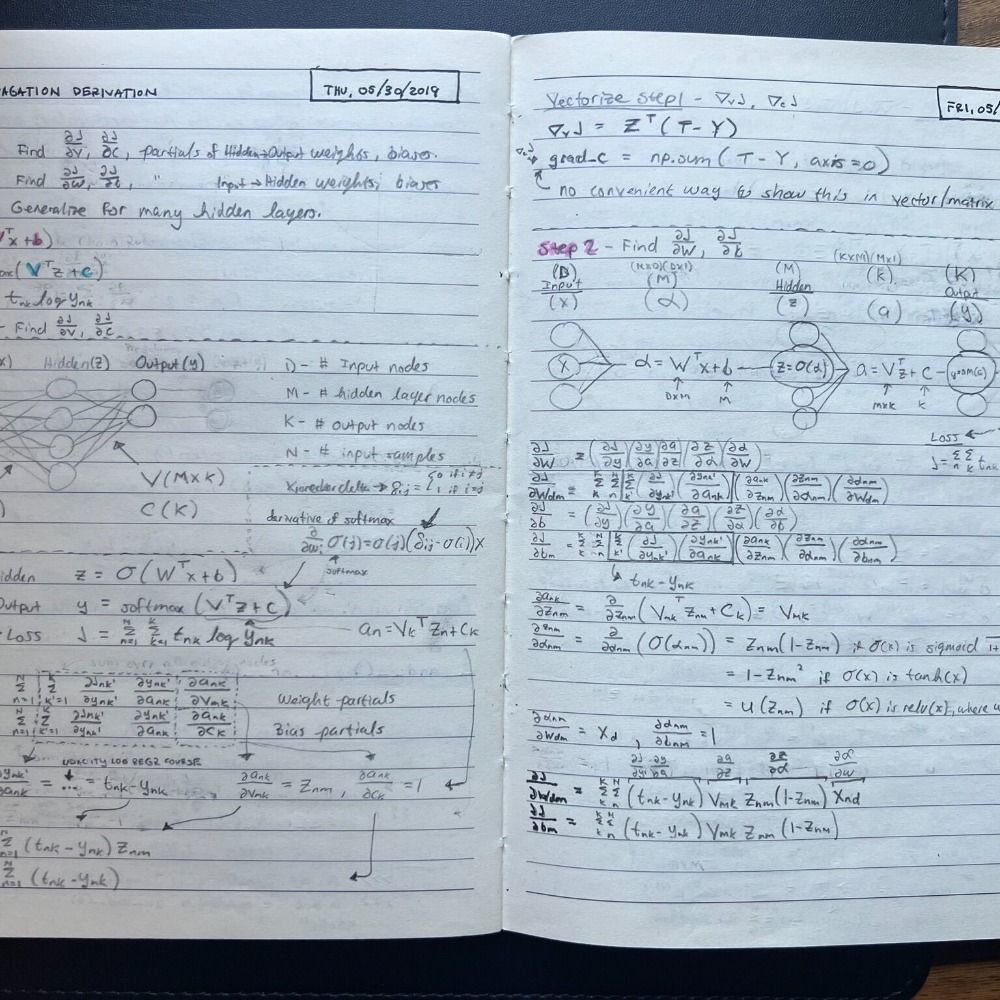 AGATION DERIVATION
THU, 05/30/2019
Find ∂J/∂V, ∂J/∂C, partials of Hidden→Output weights, biases.
Find ∂J/∂W, ∂J/∂b, " Input → Hidden weights, biases
Generalize for many hidden layers.
Vᵀx+b)
(Vᵀz+c)
tnk log ynk
- Find ∂J/∂V, ∂J/∂C
Hidden(z) Output(y)
D - # Input nodes
M - # hidden layer nodes
K - # output nodes
N - # input samples
V(MxK)
C(K)
Kronecker delta → δij = {0 if i≠j
1 if i=j
derivative of softmax
σ(j)=σ(j)(δij-σ(i))x
softmax
idden z = σ(Wᵀx+b)
Output y = softmax(Vᵀz+c)
Loss J = Σ(n=1..N) Σ(k=1..K) tnk log ynk
an=Vkᵀzn+Ck
Σ(n=1..N) Σ(k'=1..K) ∂Jnk'/∂ynk' ∂ynk'/∂ank ∂ank/∂Vmk Weight partials
Σ(n=1..N) Σ(k'=1..K) ∂Jnk'/∂ynk' ∂ynk'/∂ank ∂ank/∂Ck Bias partials
COURSE
∂ynk'/∂ank = ... = tnk-ynk ∂ank/∂Vmk = Znm, ∂ank/∂Ck = 1
Σ(n=1..N) (tnk-ynk)Znm
Σ(n=1..N) (tnk-ynk)
Vectorize Step1 - ∇vJ, ∇cJ
FRI, 05/
∇vJ = Zᵀ(T-Y)
∇cJ → grad_c = np.sum(T-Y, axis=0)
no convenient way to show this in vector/matrix
Step 2 - Find ∂J/∂W, ∂J/∂b
(D) (MxD)(Dx1) (M) (KxM)(Mx1) (K)
Input (M) Hidden (K) Output
(X) (α) (z) (a) (y)
X α = Wᵀx+b z=σ(α) a=Vᵀz+c y=sm(a)
DxM M MxK K
Loss
J=Σn Σk tnk
∂J/∂W = (∂J/∂y)(∂y/∂a)(∂a/∂z)(∂z/∂α)(∂α/∂W)
∂J/∂Wdm = Σ(k..K) Σ(n..N) [Σ(k'..K) (∂J/∂ynk')(∂ynk'/∂ank)](∂ank/∂znm)(∂znm/∂αnm)(∂αnm/∂Wdm)
∂J/∂b = (∂J/∂y)(∂y/∂a)(∂a/∂z)(∂z/∂α)(∂α/∂b)
∂J/∂bm = Σ(k..K) Σ(n..N) [Σ(k'..K) (∂J/∂ynk')(∂ynk'/∂ank)](∂ank/∂znm)(∂znm/∂αnm)(∂αnm/∂bnm)
tnk-ynk
∂ank/∂znm = ∂/∂znm (Vmkᵀznm+Ck) = Vmk
∂znm/∂αnm = ∂/∂αnm (σ(αnm)) = Znm(1-Znm) if σ(x) is sigmoid
= 1-Znm² if σ(x) is tanh(x)
= u(Znm) if σ(x) is relu(x), where u
∂αnm/∂Wdm = Xd, ∂αnm/∂bnm = 1
∂J/∂y ∂y/∂a ∂a/∂z ∂z/∂α ∂α/∂w
∂J/∂Wdm = Σ(k..K) Σ(n..N) (tnk-ynk)Vmk Znm(1-Znm)Xnd
∂J/∂bm = Σ(k..K) Σ(n..N) (tnk-ynk)Vmk Znm(1-Znm)